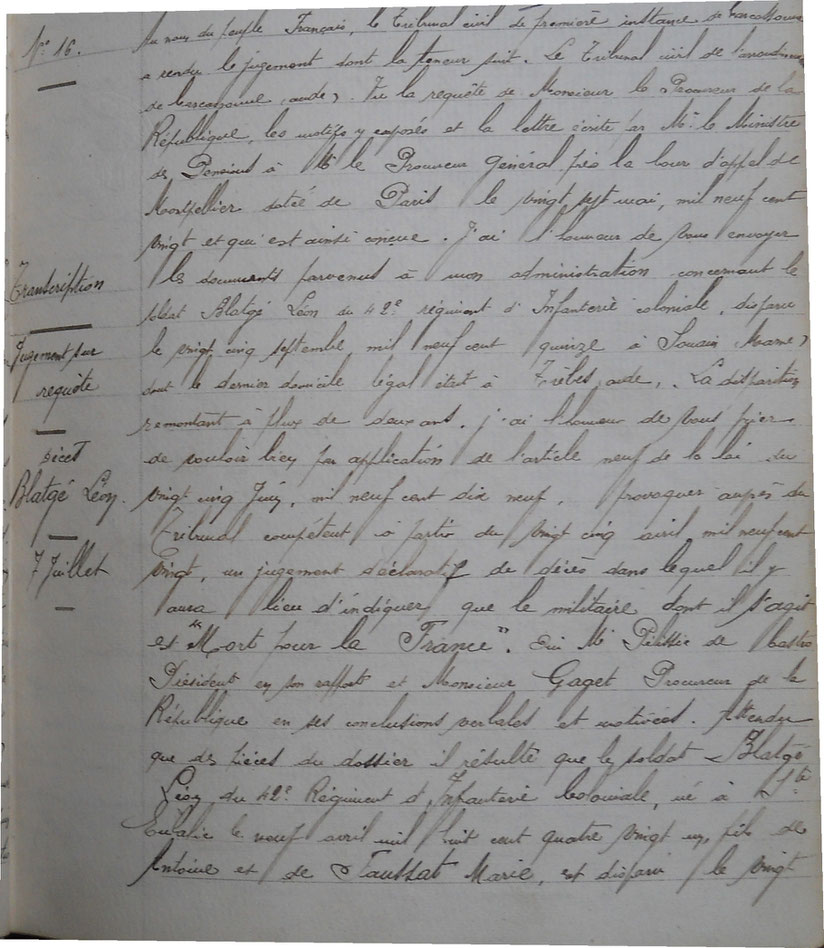 N° 16.
Au nom du peuple Français, le Tribunal civil de première instance de Carcassonne
a rendu le jugement dont la teneur suit. Le Tribunal civil de l'arrondissement
de Carcassonne (Aude). Vu la requête de Monsieur le Procureur de la
République, les motifs y exposés et la lettre écrite par Mr le Ministre
des Pensions à Mr le Procureur Général près la Cour d'appel de
Montpellier datée de Paris le vingt sept mai, mil neuf cent
vingt et qui est ainsi conçue. J'ai l'honneur de vous envoyer
les documents parvenus à mon administration concernant le
soldat Blatgé Léon du 42e régiment d'Infanterie coloniale, disparu
le vingt cinq septembre mil neuf cent quinze à Souain (Marne)
dont le dernier domicile légal était à Trèbes, aude,. La disparition
remontant à plus de deux ans, j'ai l'honneur de vous prier
de vouloir bien par application de l'article neuf de la loi du
vingt cinq Juin, mil neuf cent dix neuf, provoquer auprès du
Tribunal compétent à partir du vingt cinq avril mil neuf cent
vingt, un jugement déclaratif de décès dans lequel il y
aura lieu d'indiquer que le militaire dont il s'agit
est "Mort pour la France". Oui Mr Pélissié de Castro
Président en son rapport et Monsieur Gaget Procureur de la
République en ses conclusions verbales et motivées. Attendu
que des pièces du dossier il résulte que le soldat Blatgé
Léon du 42e Régiment d'Infanterie Coloniale, né à Ste
Eulalie le neuf avril mil huit cent quatre vingt un, fils de
Antoine et de Faussat Marie, est disparu le vingt
Transcription
Jugement sur
requête
décès
Blatgé Léon.
7 Juillet